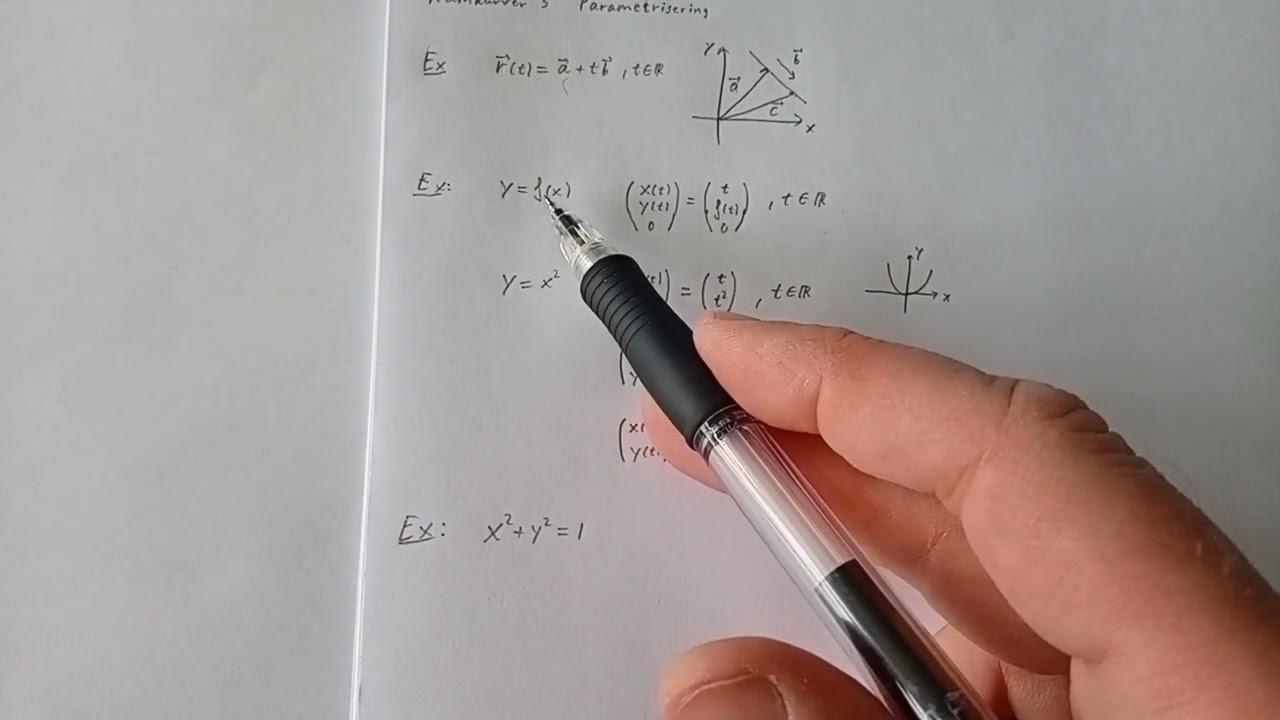 Parametrisering
Ex r⃗(t) = a⃗ + t b⃗ , t∈ℝ
y
b⃗
a⃗
c⃗
x
Ex: y = f(x) (x(t) y(t) 0) = (t f(t) 0) , t∈ℝ
y = x² = (t t²) , t∈ℝ
y
x
y(t)
Ex: x² + y² = 1